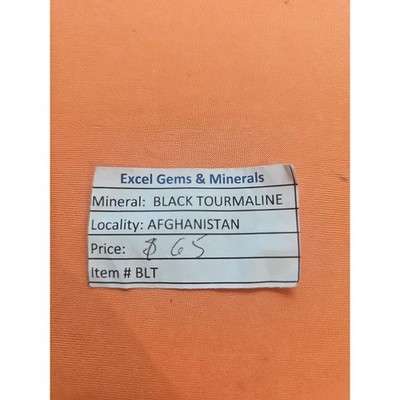 Excel Gems & Minerals
Mineral: BLACK TOURMALINE
Locality: AFGHANISTAN
Price: $ 65
Item # BLT